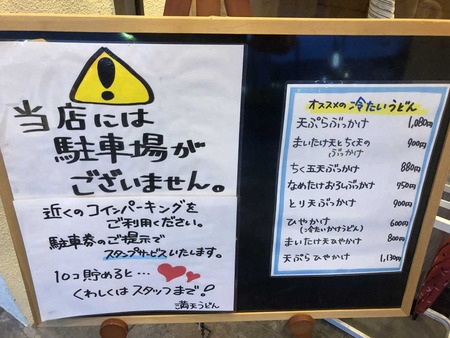 当店には
駐車場が
ございません。
近くのコインパーキングを
ご利用ください。
駐車券のご提示で
スタンプサービスいたします。
10コ貯めると…
くわしくはスタッフまで!
満天うどん
オススメの冷たいうどん
天ぷらぶっかけ 1,080円
まいたけ天とちく天の
ぶっかけ 900円
ちく玉天ぶっかけ 880円
なめたけおろしぶっかけ 950円
とり天ぶっかけ 900円
ひやかけ 600円
(冷たいかけうどん)
まいたけ天ひやかけ 800円
天ぷらひやかけ 1,130円